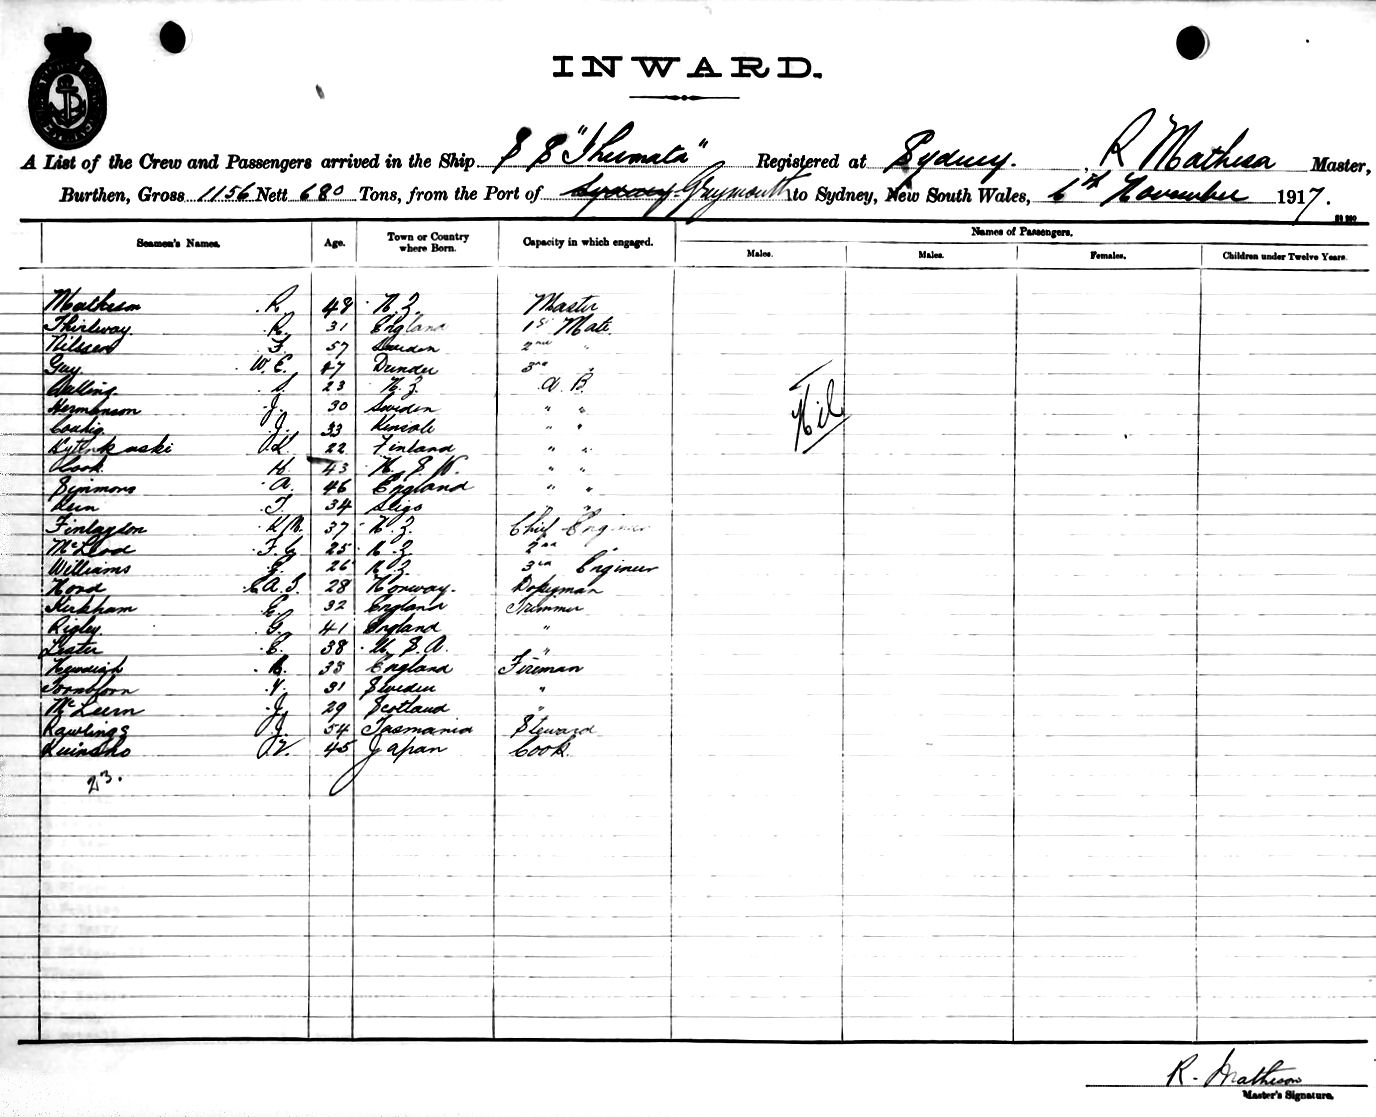 INWARD.
A List of the Crew and Passengers arrived in the Ship S S " " Registered at Sydney. R Matheson Master,
Burthen, Gross 1156 Nett 680 Tons, from the Port of Sydney Greymouth to Sydney, New South Wales, 6th November 1917.
Seamen's Names. Age. Town or Country where Born. Capacity in which engaged. Names of Passengers.
Males. Males. Females. Children under Twelve Years.
Matheson R 48 N.Z. Master
Thirlway R. 31 England 1st Mate
Nilssen F. 57 Sweden 2nd "
Guy W. E. 47 Dundee 3rd "
23 N.Z. A. B.
Hermanson J. 30 Sweden " "
J. 33 Kinsale " "
K. 22 Finland " "
Cook H. 43 N. S. W. " "
Simmons A. 46 England " "
T. 34 Sligo " "
Finlayson 37 N.Z. Chief Engineer
McLeod F. G. 25 N.Z. 2nd "
Williams G. 26 N.Z. 3rd Engineer
A. 28 Norway. Donkeyman
Kirkham E. 32 England Trimmer
Rigley G. 41 England "
Lister C. 38 U. S. A. "
33 England Fireman
V. 31 Sweden "
J. 29 Scotland "
Rawlings J. 54 Tasmania Steward
45 Japan Cook
Nil
23.
R. Matheson
Master's Signature.